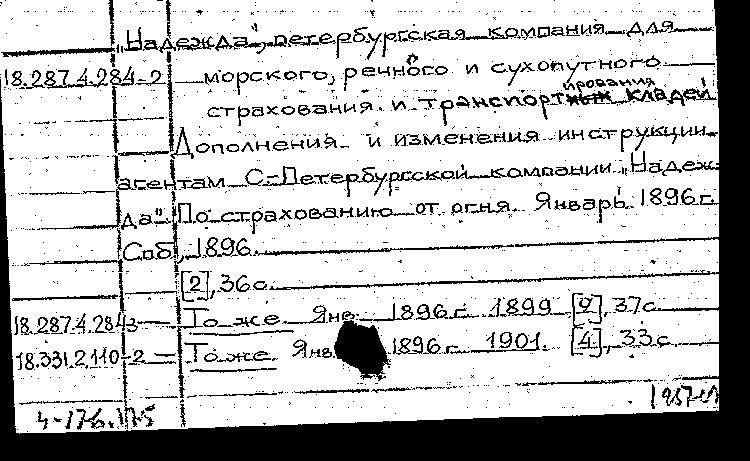 „Надежда", петербургская компания для
18.287.4.284-2 морского, речного и сухопутного
страхования и транспортирования кладей
Дополнения и изменения инструкции
агентам С-Петербургской компании „Надеж-
да" По страхованию от огня. Январь 1896 г.
Спб, 1896.
[2], 36 с.
18.287.4.284-3 — То же. Янв. 1896 г. 1899. [2], 37 с.
18.331.2.110-2 — То же. Янв. 1896 г. 1901. [4], 33 с.
4-176.175